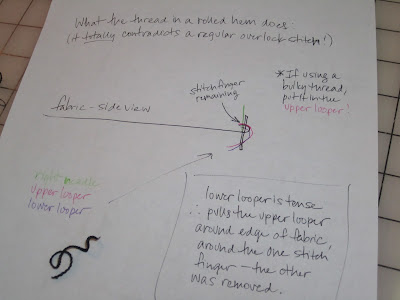 What the thread in a rolled hem does:
(it totally contradicts a regular overlock stitch!)
stitch finger
remaining
* If using a
bulky thread,
put it in the
upper looper!
fabric - side view
right needle
upper looper
lower looper
lower looper is tense
∴ pulls the upper looper
around edge of fabric,
around the one stitch
finger — the other
was removed.